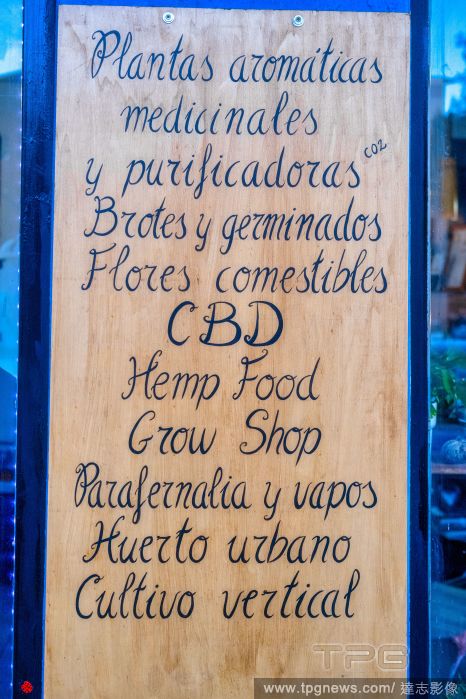 Plantas aromáticas
medicinales
y purificadoras CO2
Brotes y germinados
Flores comestibles
CBD
Hemp Food
Grow Shop
Parafernalia y vapos
Huerto urbano
Cultivo vertical
TPG
www.tpgnews.com/ 達志影像